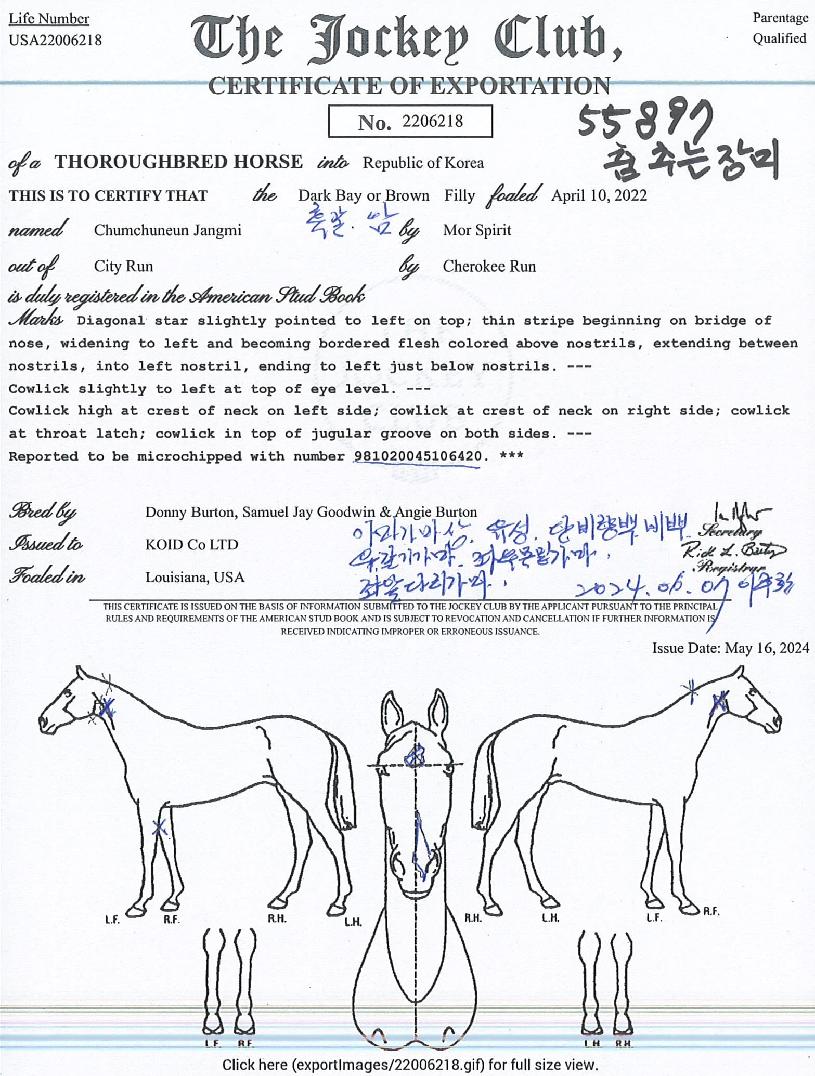 Life Number
USA22006218
The Jockey Club,
Parentage
Qualified
CERTIFICATE OF EXPORTATION
No. 2206218
55897
춤추는장미
of a THOROUGHBRED HORSE into Republic of Korea
THIS IS TO CERTIFY THAT the Dark Bay or Brown Filly foaled April 10, 2022
흑갈. 암
named Chumchuneun Jangmi by Mor Spirit
out of City Run by Cherokee Run
is duly registered in the American Stud Book
Marks Diagonal star slightly pointed to left on top; thin stripe beginning on bridge of
nose, widening to left and becoming bordered flesh colored above nostrils, extending between
nostrils, into left nostril, ending to left just below nostrils. ---
Cowlick slightly to left at top of eye level. ---
Cowlick high at crest of neck on left side; cowlick at crest of neck on right side; cowlick
at throat latch; cowlick in top of jugular groove on both sides. ---
Reported to be microchipped with number 981020045106420. ***
Bred by Donny Burton, Samuel Jay Goodwin & Angie Burton
Issued to KOID Co LTD
Foaled in Louisiana, USA
유성. 단비량백 비백
Secretary
Registrar
THIS CERTIFICATE IS ISSUED ON THE BASIS OF INFORMATION SUBMITTED TO THE JOCKEY CLUB BY THE APPLICANT PURSUANT TO THE PRINCIPAL
RULES AND REQUIREMENTS OF THE AMERICAN STUD BOOK AND IS SUBJECT TO REVOCATION AND CANCELLATION IF FURTHER INFORMATION IS
RECEIVED INDICATING IMPROPER OR ERRONEOUS ISSUANCE.
Issue Date: May 16, 2024
L.F. R.F. R.H. L.H. R.H. L.H. L.F. R.F.
L.F. R.F. L.H. R.H.
Click here (exportImages/22006218.gif) for full size view.